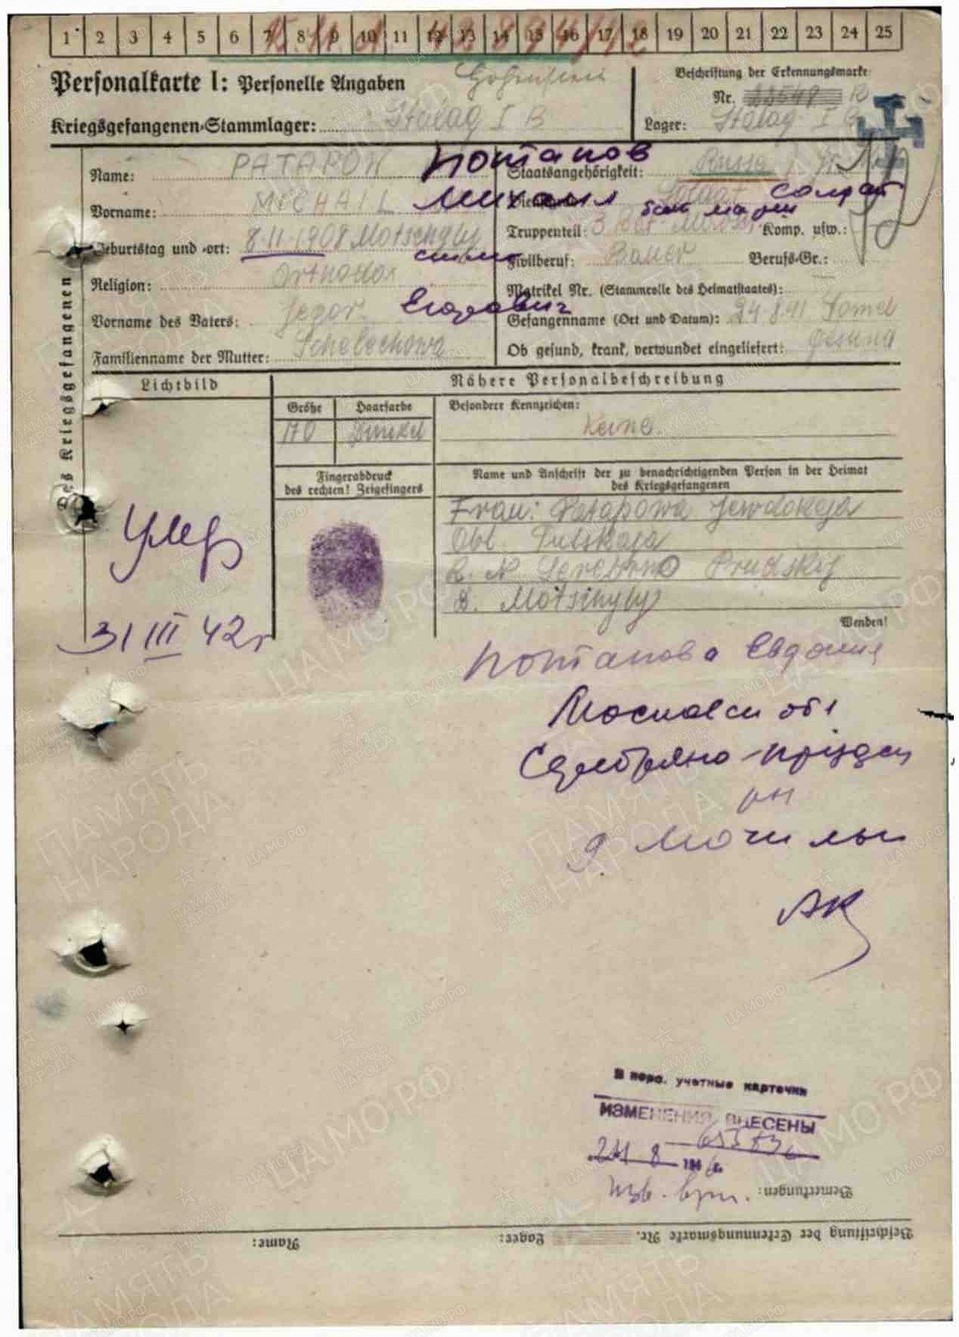 1 2 3 4 5 6 7 8 9 10 11 12 13 14 15 16 17 18 19 20 21 22 23 24 25
Personalkarte I: Personelle Angaben
Beschriftung der Erkennungsmarke
Nr.
Kriegsgefangenen-Stammlager: Stalag I B
Lager: Stalag I B
des Kriegsgefangenen
Name: PATAPOW Потапов
Staatsangehörigkeit: Russe
Vorname: MICHAIL Михаил
Dienstgrad: Soldat Солдат
Geburtstag und -ort: 8.11.1908 Motschyly
Truppenteil: 3 Komp. usw.:
Zivilberuf: Bauer Berufs-Gr.:
Religion: Orthodox
Matrikel Nr. (Stammrolle des Heimatstaates):
Vorname des Vaters: Jegor Егорович
Gefangennahme (Ort und Datum): 24.8.41 Gomel
Familienname der Mutter: Schelechowa
Ob gesund, krank, verwundet eingeliefert: gesund
Lichtbild
Nähere Personalbeschreibung
Größe Haarfarbe Besondere Kennzeichen:
170 Dunkel Keine.
Fingerabdruck
des rechten! Zeigefingers
Name und Anschrift der zu benachrichtigenden Person in der Heimat
des Kriegsgefangenen
Frau: Patapowa Jewdokeja
Obl. Tulskaja
Serebrno Prudskij
D. Motschyly
Wenden!
Умер
31 III 42г
Потапова Евдокия
Московск обл
Серебряно-Прудск
рн
д Мочилы
В перс. учетные карточки
ИЗМЕНЕНИЯ ВНЕСЕНЫ
24 8 1946г.
Bemerkungen:
Beschriftung der Erkennungsmarke Nr. Lager: Name:
ПАМЯТЬ НАРОДА
ЦАМО РФ